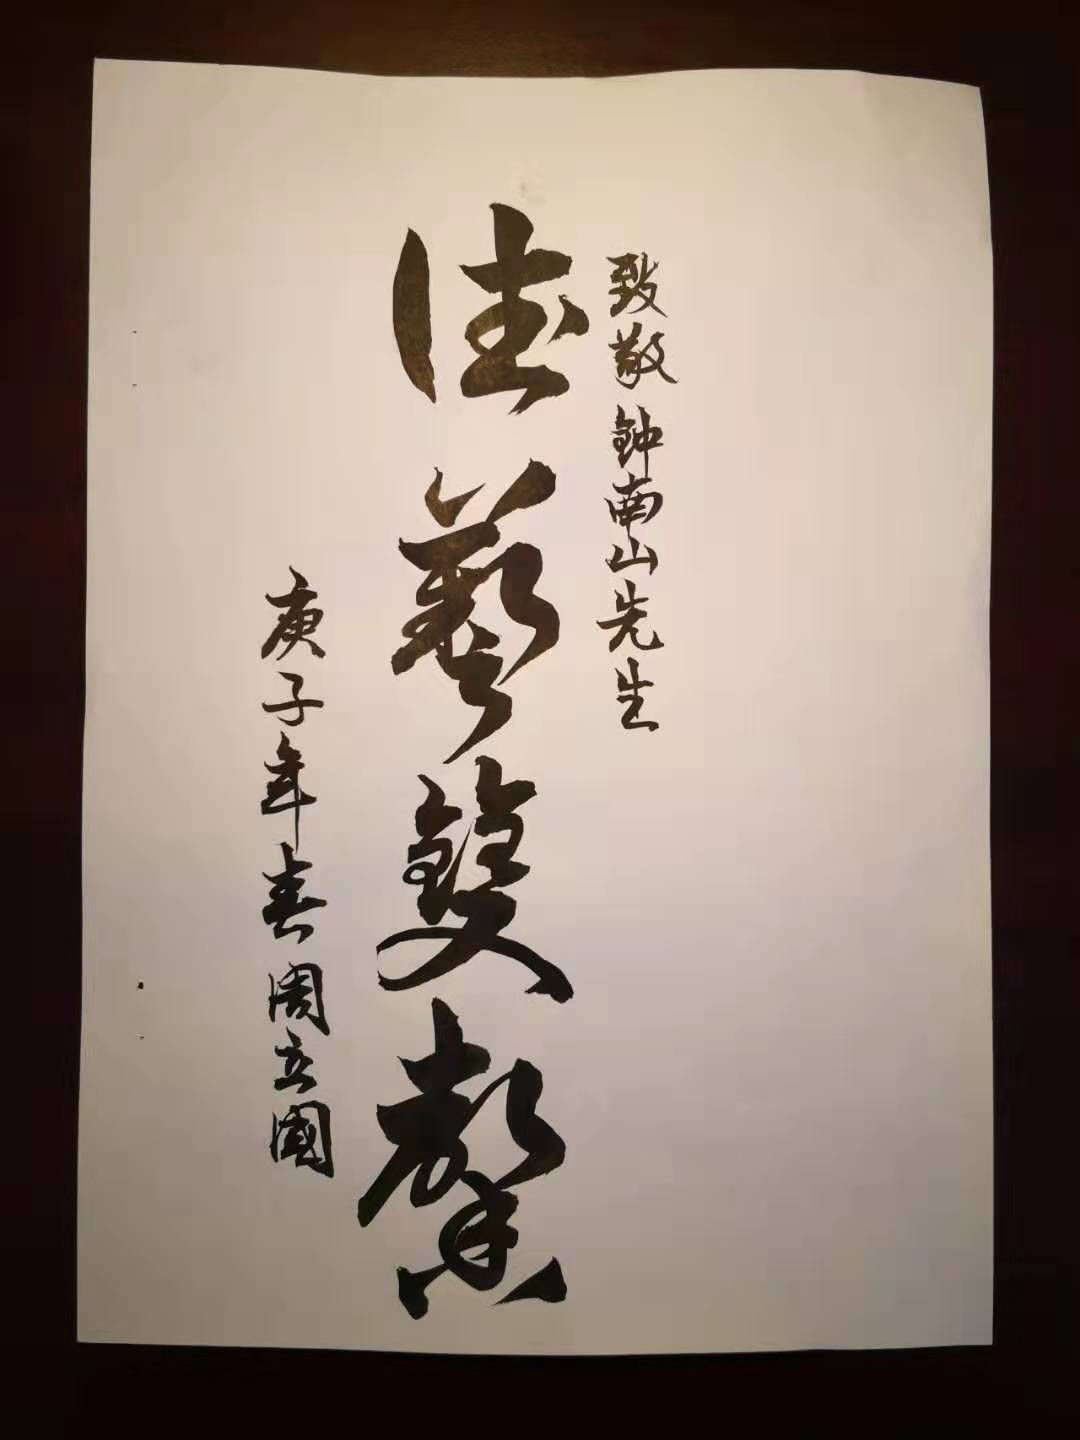 致敬钟南山先生
德藝雙馨
庚子年春周立國